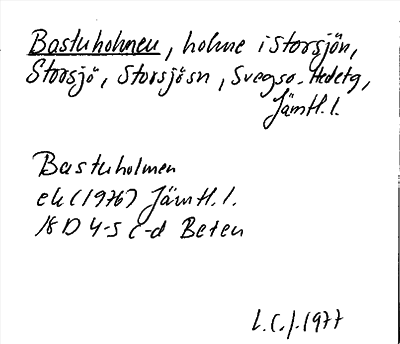 Bastuholmen, holme i Storsjön,
Storsjö, Storsjö sn, Svegs o. Hede tg,
Jämtl. l.
Bastuholmen
ek (1976) Jämtl. l.
18 D 4-5 c-d Beten
L.C.J. 1977